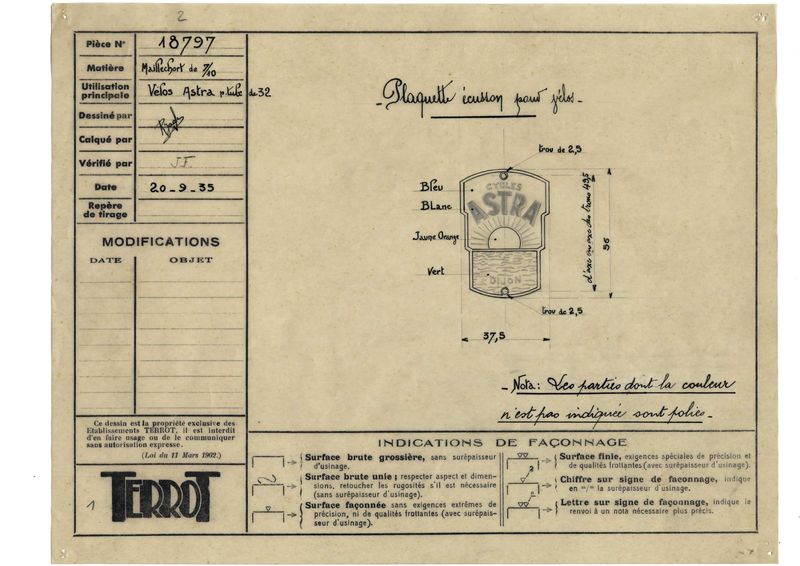 2
Pièce N° 18797
Matière Maillechort de 7/10
Utilisation principale Vélos Astra p. tube de 32
Dessiné par
Calqué par
Vérifié par J.F.
Date 20-9-35
Repère de tirage
MODIFICATIONS
DATE OBJET
Ce dessin est la propriété exclusive des
Etablissements TERROT, il est interdit
d'en faire usage ou de le communiquer
sans autorisation expresse.
(Loi du 11 Mars 1902.)
1
TERROT
- Plaquette écusson pour vélos -
trou de 2,5
Bleu
Blanc
Jaune Orange
Vert
CYCLES
ASTRA
DIJON
d'axe en axe des trous 49,5
56
trou de 2,5
37,5
- Nota: Les parties dont la couleur
n'est pas indiquée sont polies -
INDICATIONS DE FAÇONNAGE
Surface brute grossière, sans surépaisseur
d'usinage.
Surface brute unie; respecter aspect et dimen-
sions, retoucher les rugosités s'il est nécessaire
(sans surépaisseur d'usinage).
Surface façonnée sans exigences extrêmes de
précision, ni de qualités frottantes (avec surépais-
seur d'usinage).
Surface finie, exigences spéciales de précision et
de qualités frottantes (avec surépaisseur d'usinage).
Chiffre sur signe de façonnage, indique
en m/m la surépaisseur d'usinage.
Lettre sur signe de façonnage, indique le
renvoi à un nota nécessaire plus précis.